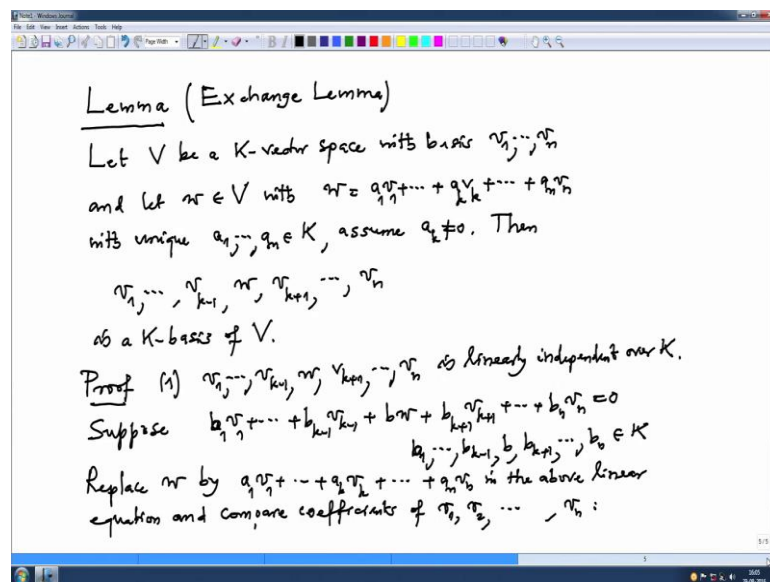 Note1 - Windows Journal
File Edit View Insert Actions Tools Help
Page Width
B I
Lemma (Exchange Lemma)
Let V be a K-vector space with basis v₁,…,vₙ
and let w ∈ V with w = a₁v₁+⋯+aₖvₖ+⋯+aₙvₙ
with unique a₁,…,aₙ ∈ K, assume aₖ≠0. Then
v₁,…,vₖ₋₁, w, vₖ₊₁,…,vₙ
is a K-basis of V.
Proof (1) v₁,…,vₖ₋₁, w, vₖ₊₁,…,vₙ is linearly independent over K.
Suppose b₁v₁+⋯+bₖ₋₁vₖ₋₁+bw+bₖ₊₁vₖ₊₁+⋯+bₙvₙ=0
b₁,…,bₖ₋₁,b,bₖ₊₁,…,bₙ ∈ K
Replace w by a₁v₁+⋯+aₖvₖ+⋯+aₙvₙ in the above linear
equation and compare coefficients of v₁,v₂,⋯,vₙ:
5/5
5
16:05